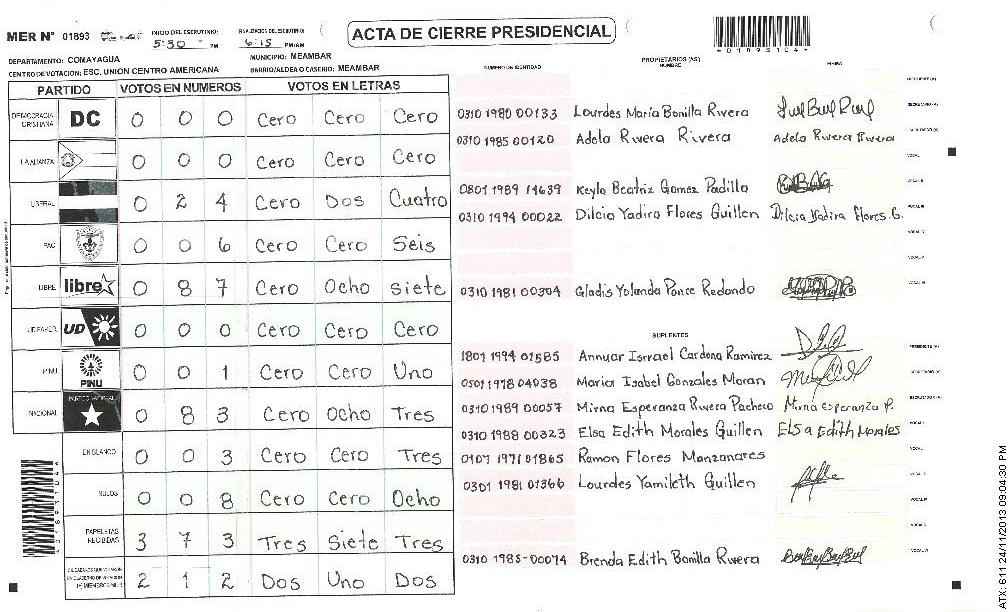 MER N° 01893
INICIO DEL ESCRUTINIO: 5:30 PM
FINALIZACION DEL ESCRUTINIO: 6:15 PM/AM
ACTA DE CIERRE PRESIDENCIAL
DEPARTAMENTO: COMAYAGUA
MUNICIPIO: MEAMBAR
CENTRO DE VOTACION: ESC. UNION CENTRO AMERICANA
BARRIO/ALDEA O CASERIO: MEAMBAR
PARTIDO VOTOS EN NUMEROS VOTOS EN LETRAS
DEMOCRACIA CRISTIANA DC 0 0 0 Cero Cero Cero
LA ALIANZA 0 0 0 Cero Cero Cero
LIBERAL 0 2 4 Cero Dos Cuatro
PAC 0 0 6 Cero Cero Seis
LIBRE libre 0 8 7 Cero Ocho siete
UD FAPER UD 0 0 0 Cero Cero Cero
PINU PINU 0 0 1 Cero Cero Uno
NACIONAL PARTIDO NACIONAL 0 8 3 Cero Ocho Tres
EN BLANCO 0 0 3 Cero Cero Tres
NULOS 0 0 8 Cero Cero Ocho
PAPELETAS RECIBIDAS 3 7 3 Tres Siete Tres
2 1 2 Dos Uno Dos
NUMERO DE IDENTIDAD
PROPIETARIOS (AS)
NOMBRE
FIRMA
0310 1980 00133 Lourdes María Bonilla Rivera
0310 1985 00120 Adela Rivera Rivera Adela Rivera Rivera
0801 1989 14639 Keyla Beatriz Gomez Padilla
0310 1994 00022 Dilcia Yadira Flores Guillen Dilcia Yadira Flores G.
0310 1981 00304 Gladis Yolanda Ponce Redondo
SUPLENTES
1801 1994 01585 Annuar Isrrael Cardona Ramirez
0501 1978 04038 Maria Isabel Gonzales Moran
0310 1989 00057 Mirna Esperanza Rivera Pacheco Mirna esperanza P.
0310 1988 00323 Elsa Edith Morales Guillen Elsa Edith Morales
0107 1971 01865 Ramon Flores Manzanares
0301 1981 01366 Lourdes Yamileth Guillen
0310 1985-00074 Brenda Edith Bonilla Rivera
ATX: 611 24/11/2013 09:04:30 PM